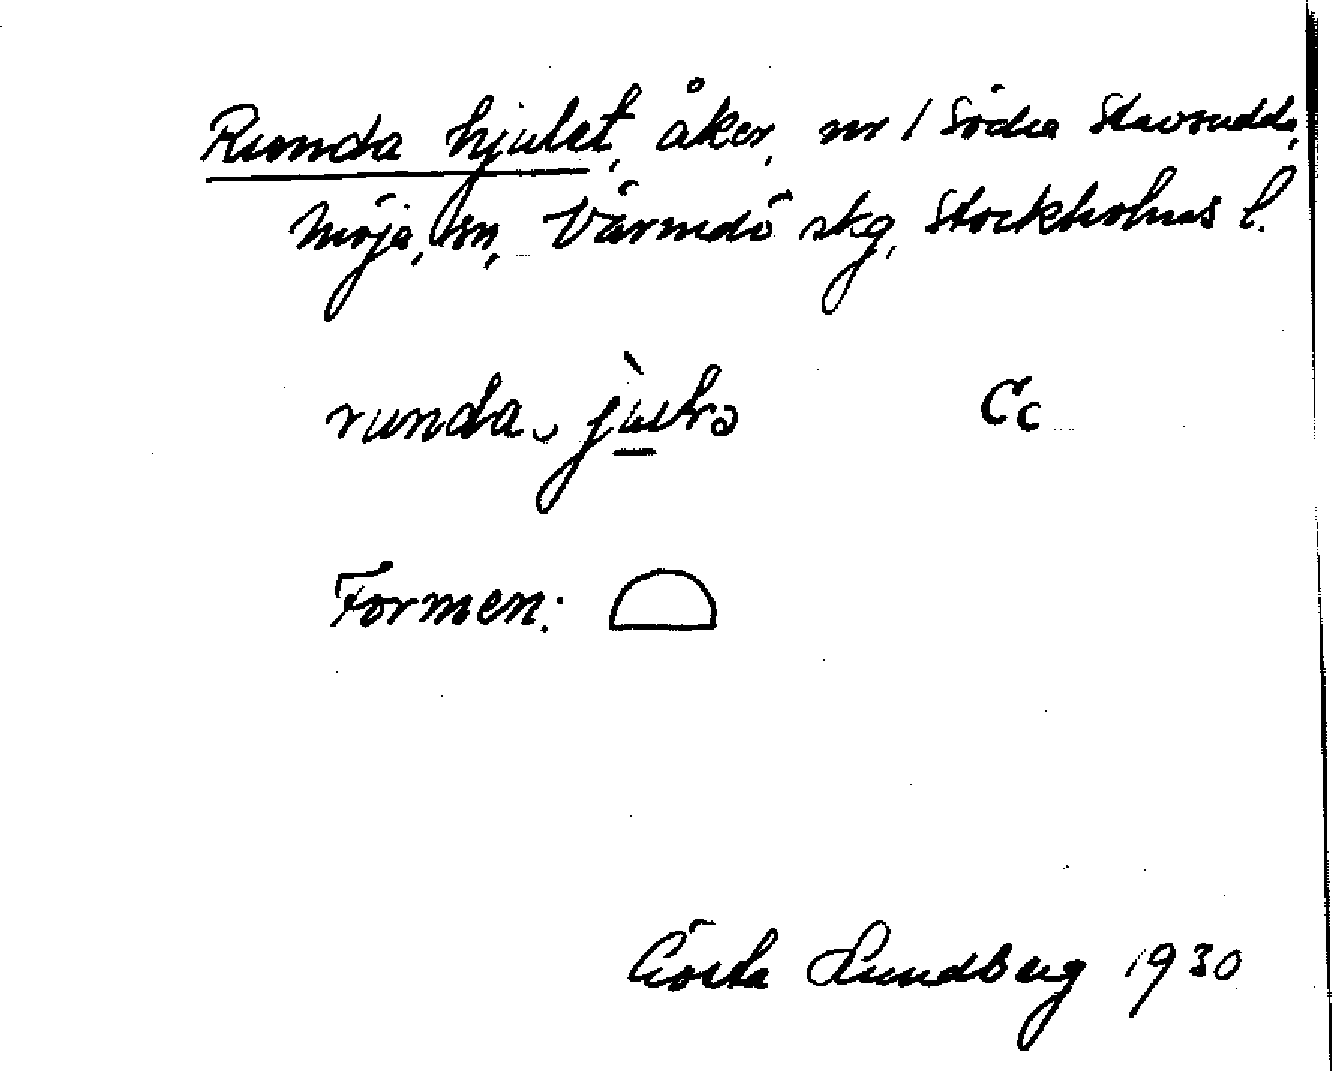 Runda hjulet, åker, nr 1 Södra Stavsudda,
Möja sn, Värmdö skg, Stockholms l.
runda
Cc
Formen:
Gösta Lundberg 1930